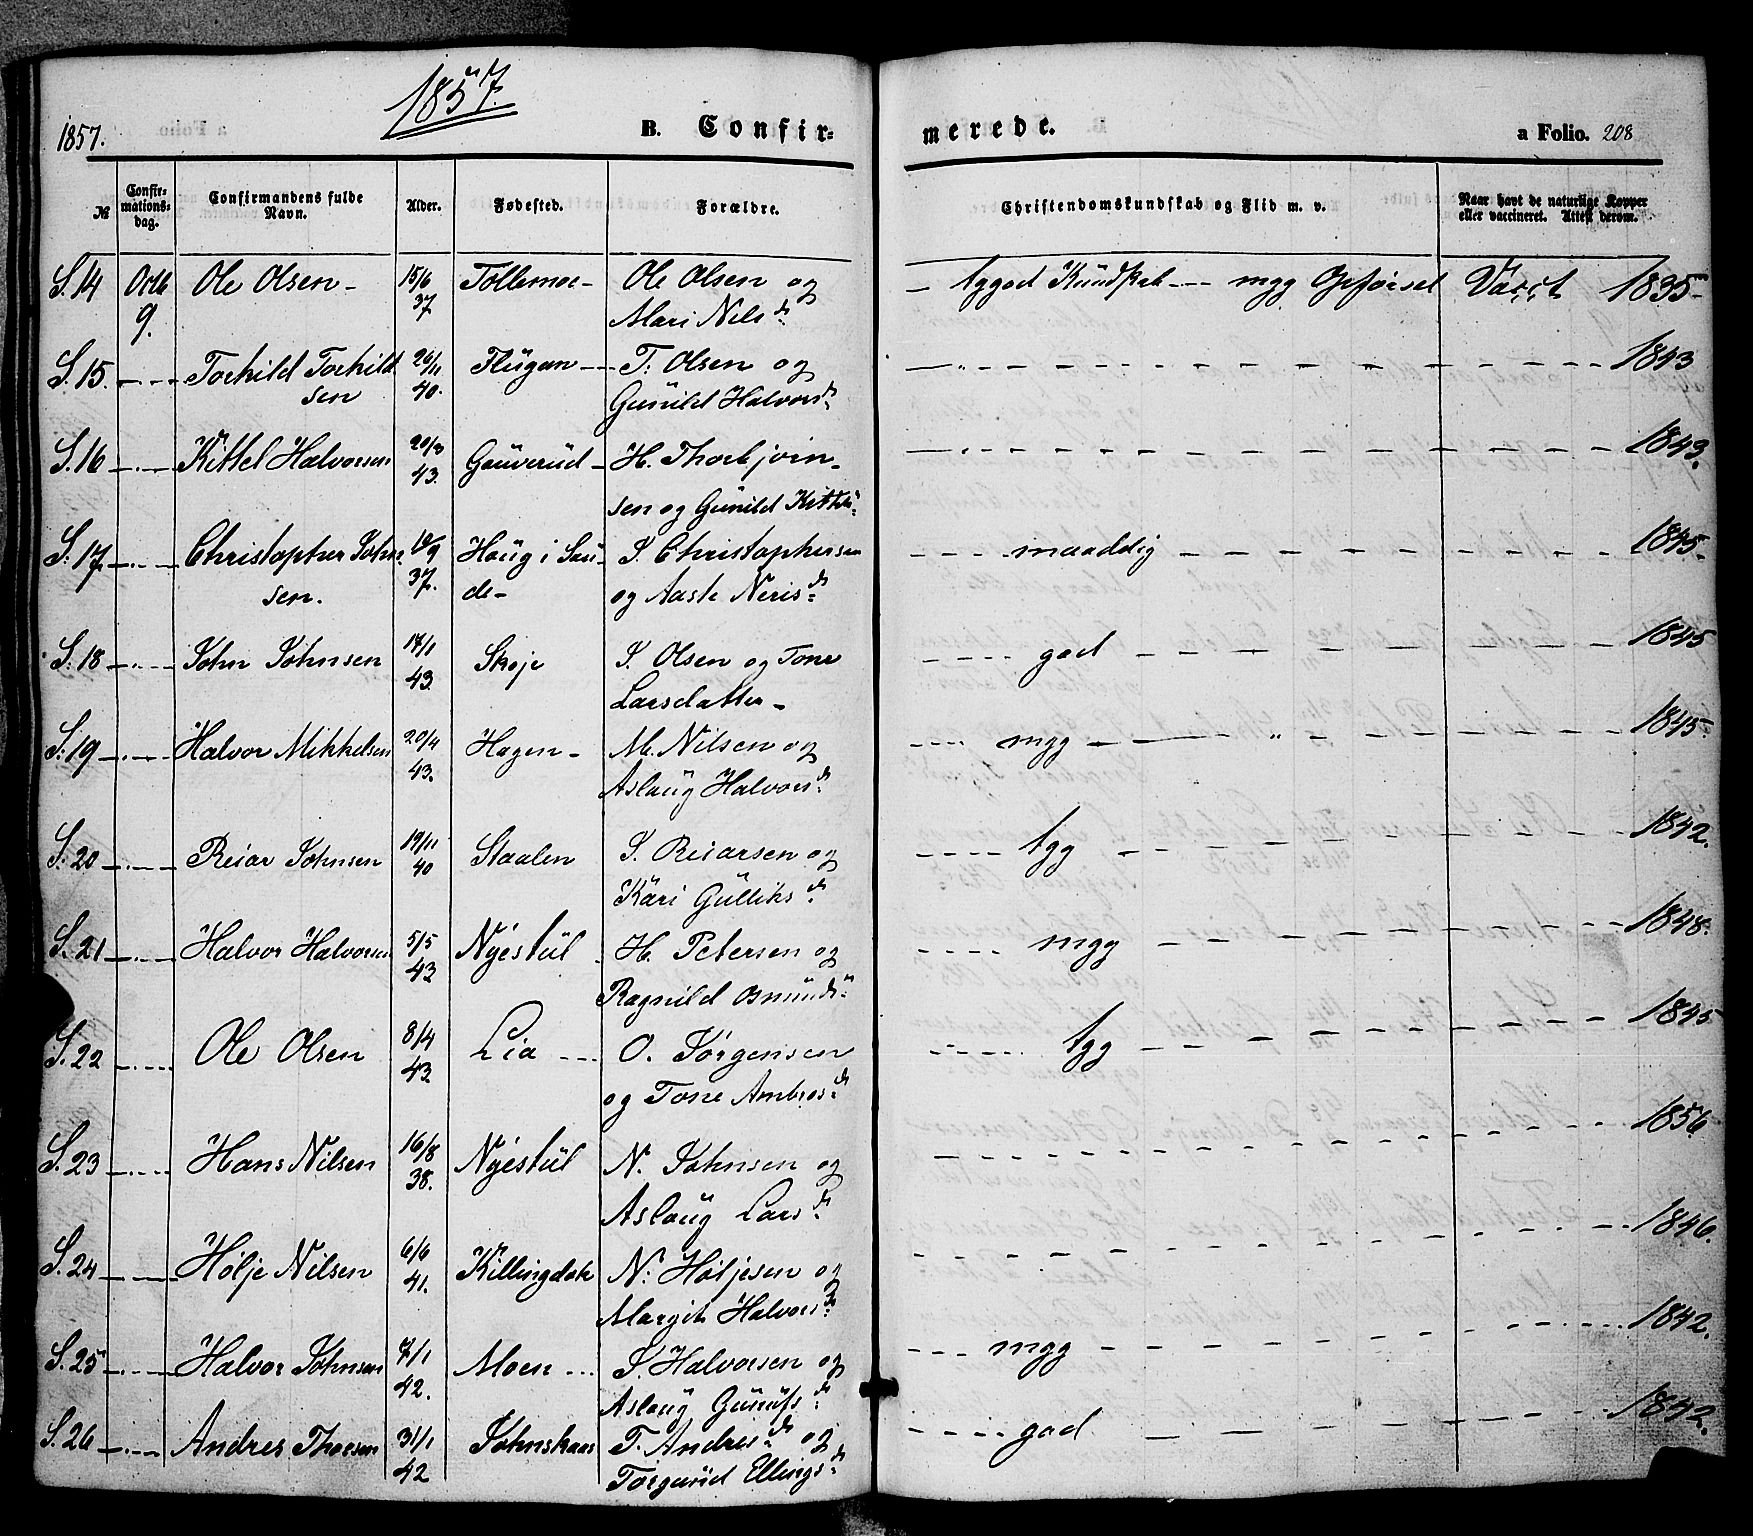 1857.
1857.
B. Confir=
merede.
a Folio. 208
№
Confir=
mations=
dag.
Confirmandens fulde
Navn.
Alder.
Fødested.
Forældre.
Christendomskundskab og Flid m. v.
Naar havt de naturlige Kopper
eller vaccineret. Attest derom.
S. 14 Octb 9. Ole Olsen - 15/6 37 Tollemoe - Ole Olsen og
Mari Nels dr — tggod Kundskab --- mgg Opførsel Vacct 1835
S. 15. Torkild Torkild
sen 26/11 40. Flugan -- T. Olsen og
Gunild Halvors dr 1843
S. 16 Kittel Halvorsen 20/3 43. Gauverud - H. Thorbjørn-
sen og Gunild Kittels 1843.
S. 17 Christopher John
sen. 10/9 37. Haug i Sau-
de - J. Christophersen
og Aaste Neris dr maadelig 1845.
S. 18 John Johnsen 17/1 43. Skoje J. Olsen og Tone
Larsdatter - god 1845
S. 19 Halvor Mikkelsen 20/4 43. Hagen - M. Nilsen og
Aslaug Halvors dr mgg 1845.
S. 20 Reiar Johnsen 19/11 40 Staalen J. Reiarsen og
Kari Gulliks dr tgg 1842.
S. 21 Halvor Halvorsen 5/5 43 Nyestul H. Petersen og
Ragnild Osmunds mgg 1848.
S. 22 Ole Olsen 8/4 43 Lia --- O. Jørgensen
og Tone Ambros dr tgg 1845
S. 23 Hans Nilsen 16/8 38. Nyestul N. Johnsen og
Aslaug Lars dr 1856
S. 24 Hølje Nilsen 6/6 41. Killingdok N. Høljesen og
Margit Halvors dr 1846.
S. 25 Halvor Johnsen 7/1 42. Moen --- J. Halvorsen og
Aslaug Gunufs dr mgg 1842.
S. 26 Andres Thorsen 31/1 42 Johnskaas T. Andres dr og
Torgunid Ellings dr god 1842.